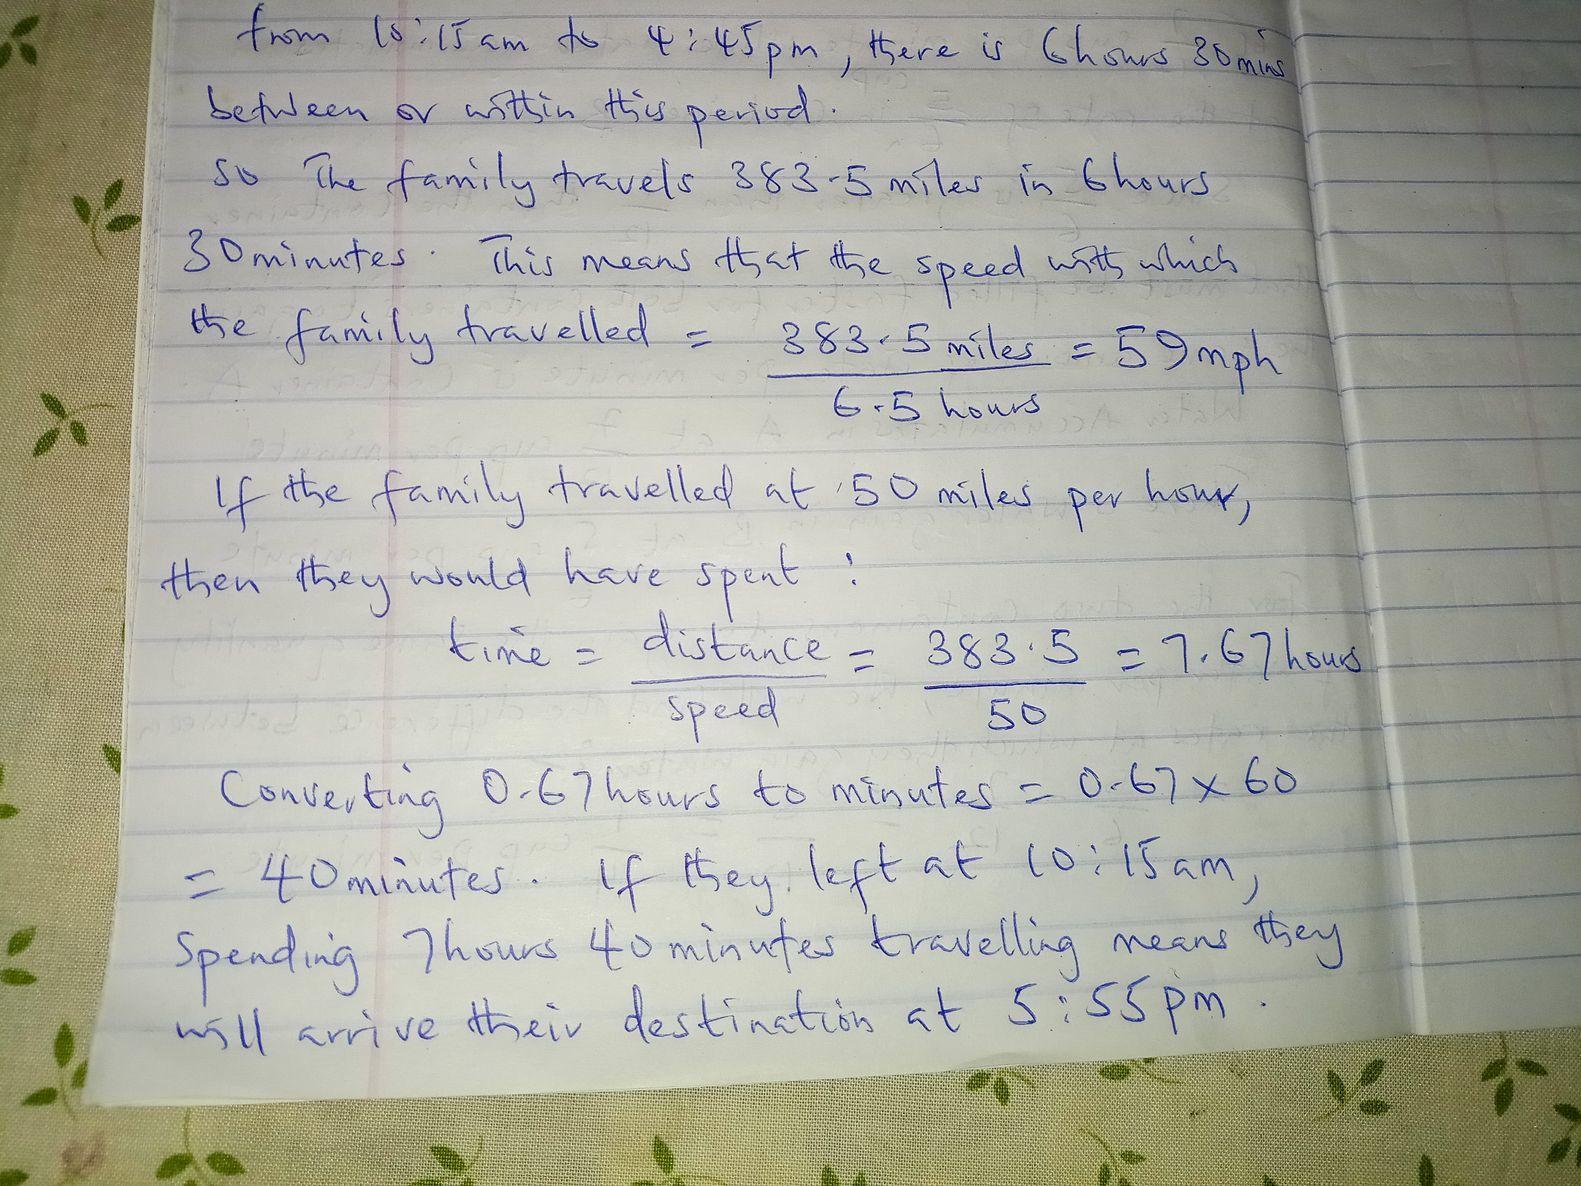 from 10:15am to 4:45pm, there is 6hours 30mins
between or within this period.
so The family travels 383.5 miles in 6hours
30minutes. This means that the speed with which
the family travelled = 383.5 miles = 59mph
6.5 hours
If the family travelled at 50 miles per hour,
then they would have spent :
time = distance = 383.5 = 7.67hours
speed 50
Converting 0.67hours to minutes = 0.67 x 60
= 40minutes. If they left at 10:15am,
Spending 7hours 40minutes travelling means they
will arrive their destination at 5:55pm.